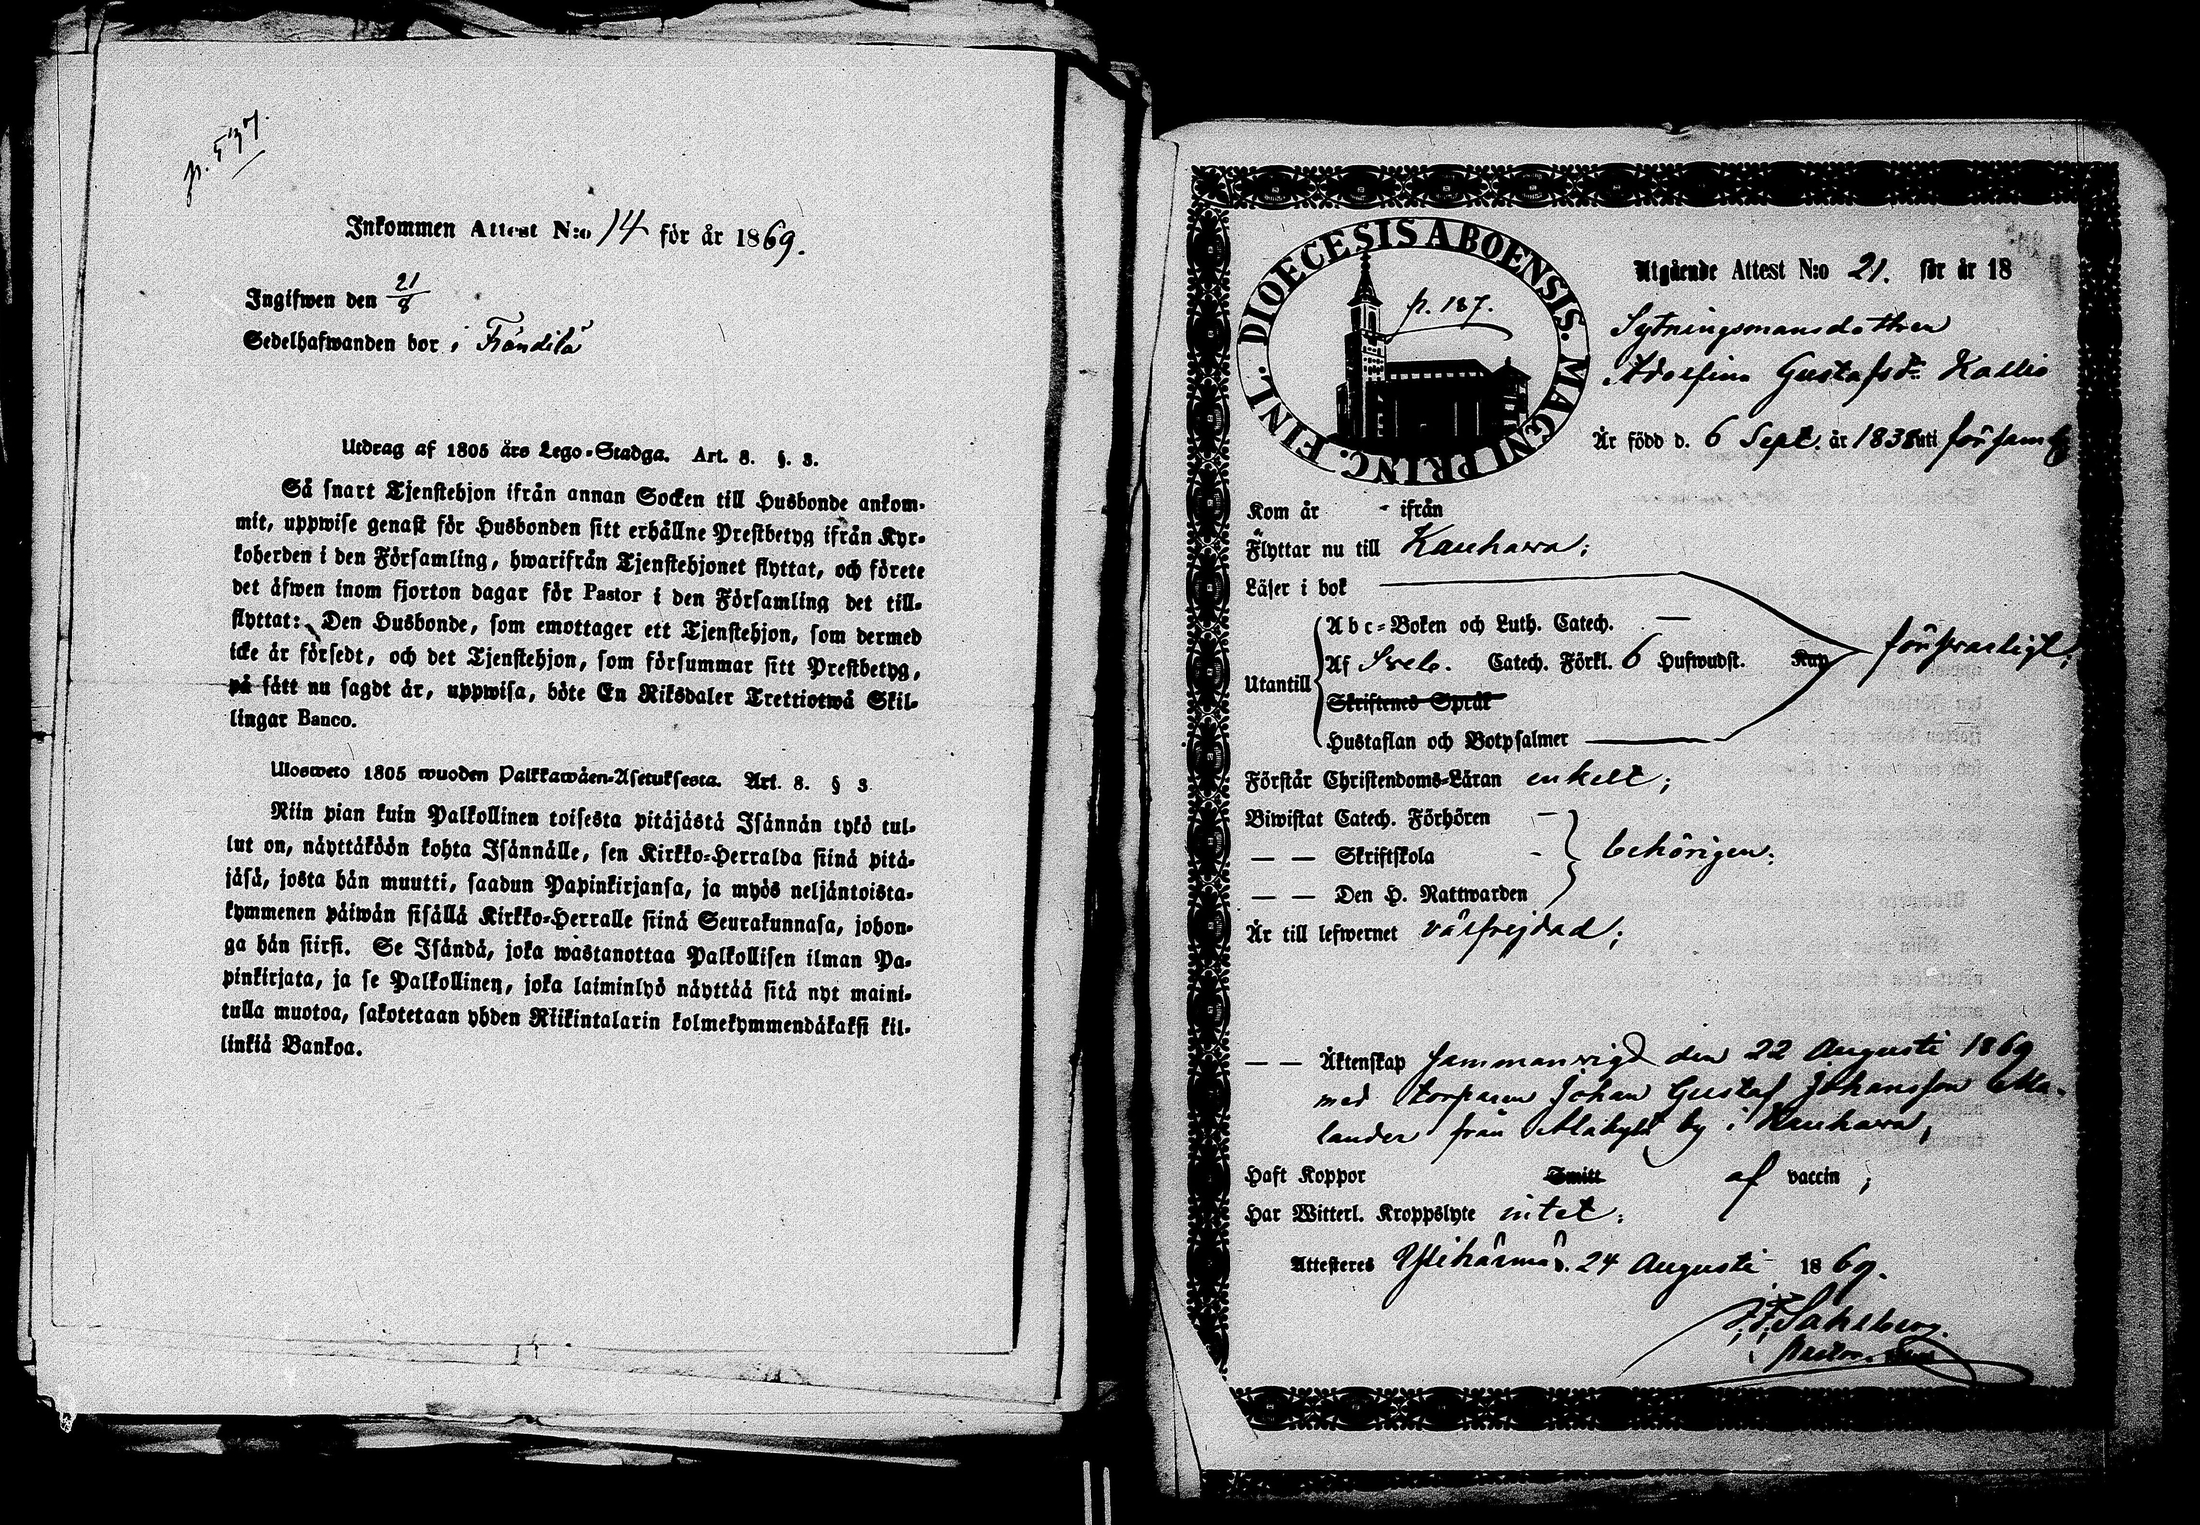 p. 537.
Inkommen Attest N:o 14 för år 1869.
Ingifwen den 21/8
Sedelhafwanden bor i Frändilä
Utdrag af 1805 års Lego-Stadga. Art. 8. §. 3.
Så snart Tjenstehjon ifrån annan Socken till Husbonde ankom-
mit, uppwise genast för Husbonden sitt erhållne Prestbetyg ifrån Kyr-
koherden i den Församling, hwarifrån Tjenstehjonet flyttat, och förete
det äfwen inom fjorton dagar för Pastor i den Församling det till-
flyttat: Den Husbonde, som emottager ett Tjenstehjon, som dermed
icke är försedt, och det Tjenstehjon, som försummar sitt Prestbetyg,
på sätt nu sagdt är, uppwisa, böte En Riksdaler Trettiotwå Skil-
lingar Banco.
Ulosweto 1805 wuoden Palkkawäen-Asetuksesta. Art. 8. § 3.
Niin pian kuin Palkollinen toisesta pitäjästä Isännän tykö tul-
lut on, näyttäköön kohta Isännälle, sen Kirkko-Herralda siinä pitä-
jäsä, josta hän muutti, saadun Papinkirjansa, ja myös neljäntoista-
kymmenen päiwän sisällä Kirkko-Herralle siinä Seurakunnasa, johon-
ga hän siirsi. Se Isändä, joka wastanottaa Palkollisen ilman Pa-
pinkirjata, ja se Palkollinen, joka laiminlyö näyttää sitä nyt maini-
tulla muotoa, sakotetaan yhden Riikintalarin kolmekymmendäkaksi kil-
linkiä Bankoa.
DIOECESIS ABOENSIS. MAGNI PRINC. FINL.
p. 187.
Utgående Attest N:o 21. för år 18
Sytningsmansdottren
Adolfina Gustafsdr Kallio
Är född d. 6 Sept. år 1838 uti förSaml
Kom år - ifrån
Flyttar nu till Kauhawa;
Läser i bok
Abc-Boken och Luth. Catech. —
Utantill
Af Sveb. Catech. Förkl. 6 Hufwudst. Kap
försvarligt;
Skriftenes Språk
Hustaflan och Botpsalmer
Förstår Christendoms-Läran enkelt;
Biwistat Catech. Förhören —
— — Skriftskola - behörigen;
— — Den H. Nattwarden
Är till lefwernet välfrejdad;
— — Äktenskap sammanvigd den 22 Augusti 1869
med torparen Johan Gustaf Johansson Ala-
lander från Alakylä by i Kauhawa;
Haft Koppor Smitt af vaccin;
Har Witterl. Kroppslyte intet;
Attesteres Ylihärmä d. 24 Augusti 1869.
J. F. Sahlberg.
Pastor.